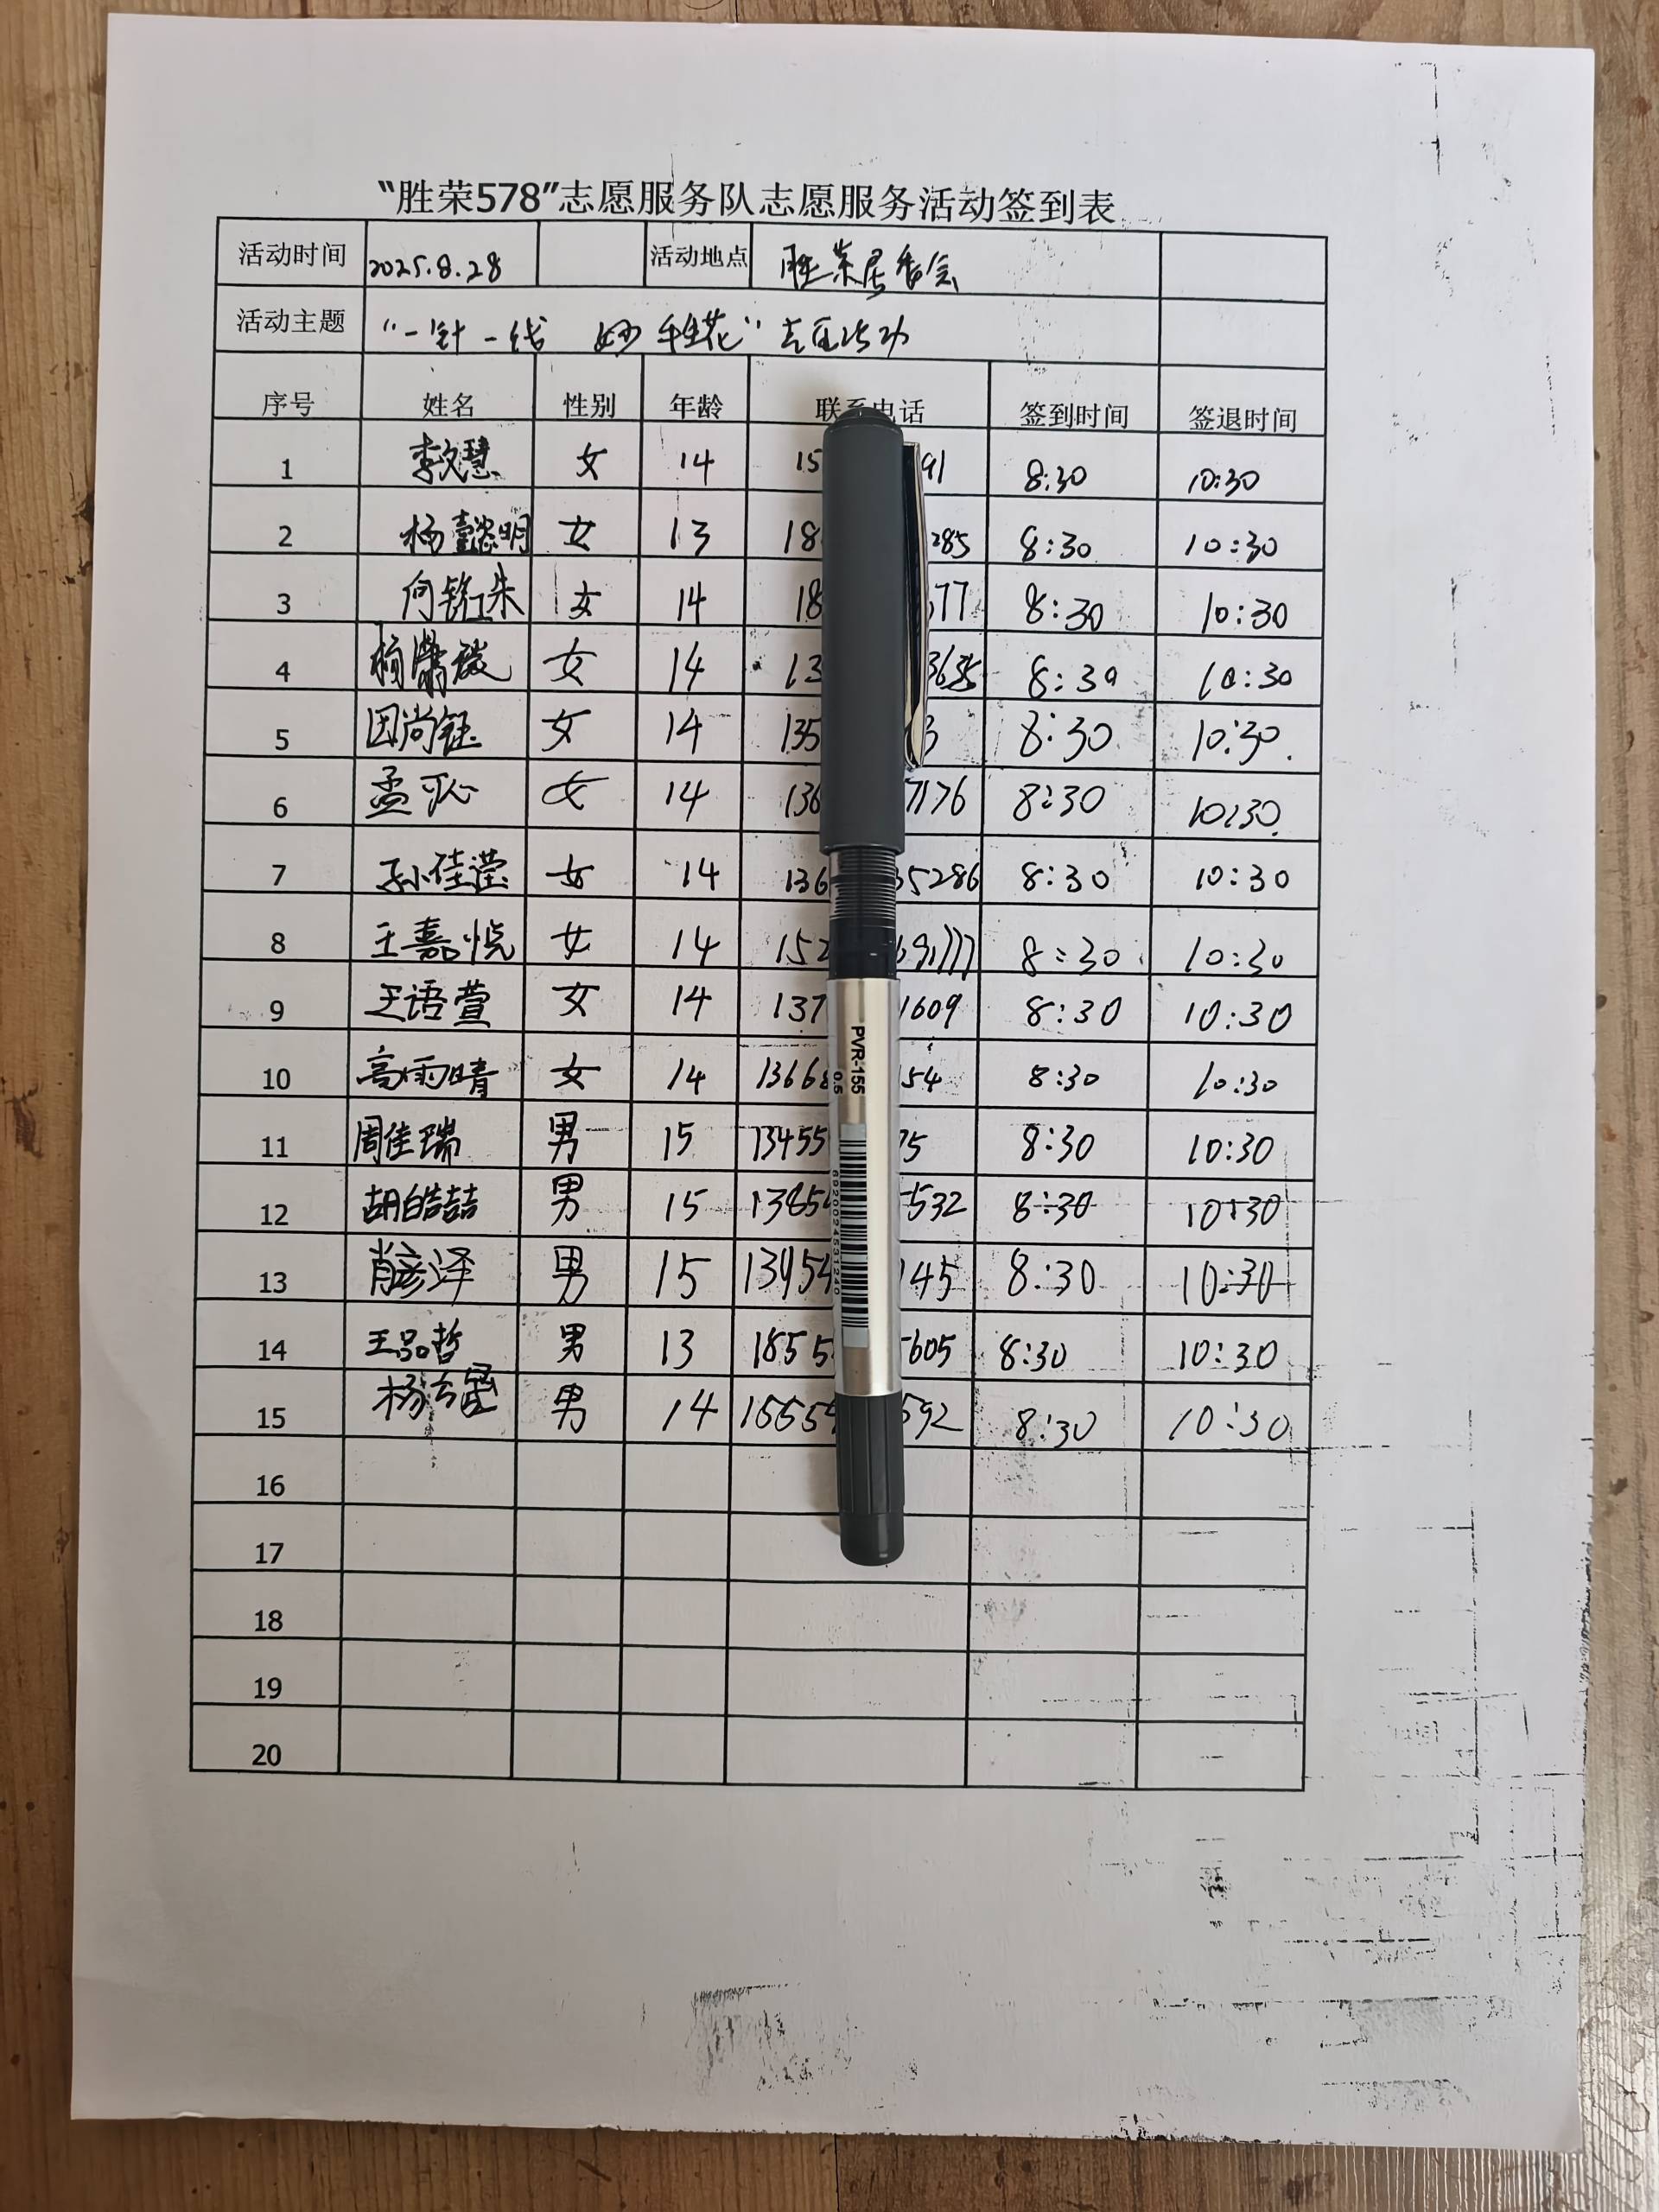 “胜荣578”志愿服务队志愿服务活动签到表
活动时间 2025.8.28 活动地点 胜荣居委会
活动主题 “一针一线 妙手生花”志愿活动
序号 姓名 性别 年龄 联系电话 签到时间 签退时间
1 李文慧 女 14 15 91 8:30 10:30
2 杨懿明 女 13 18 285 8:30 10:30
3 何铭朱 女 14 18 77 8:30 10:30
4 杨 女 14 13 8:30 10:30
5 尚钰 女 14 135 3 8:30 10:30
6 孟可心 女 14 136 7176 8:30 10:30
7 孙佳滢 女 14 136 5286 8:30 10:30
8 王嘉悦 女 14 152 8:30 10:30
9 王语萱 女 14 137 1609 8:30 10:30
10 高雨晴 女 14 1366 54 8:30 10:30
11 周佳瑞 男 15 13455 75 8:30 10:30
12 胡皓喆 男 15 1385 532 8:30 10:30
13 肖彦泽 男 15 1395 145 8:30 10:30
14 王品哲 男 13 1855 605 8:30 10:30
15 杨 男 14 1565 592 8:30 10:30
16
17
18
19
20
PVR-155
0.5
6920024531240